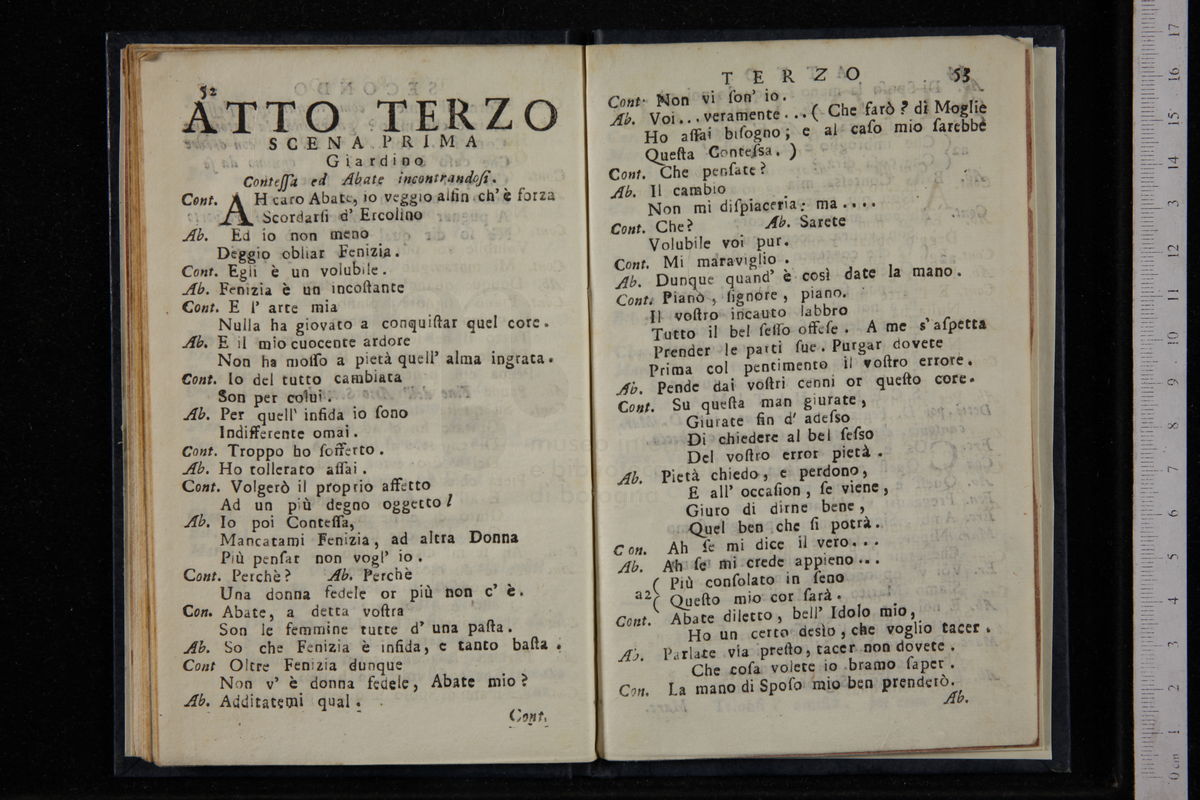 52
ATTO TERZO
SCENA PRIMA
Giardino
Conteſſa ed Abate incontrandoſi.
Cont. AH caro Abate, io veggio alfin ch' è forza
Scordarſi d' Ercolino
Ab. Ed io non meno
Deggio obliar Fenizia.
Cont. Egli è un volubile.
Ab. Fenizia è un incoſtante
Cont. E l' arte mia
Nulla ha giovato a conquiſtar quel core.
Ab. E il mio cuocente ardore
Non ha moſſo a pietà quell' alma ingrata.
Cont. Io del tutto cambiata
Son per colui.
Ab. Per quell' infida io ſono
Indifferente omai.
Cont. Troppo ho ſofferto.
Ab. Ho tollerato aſſai.
Cont. Volgerò il proprio affetto
Ad un più degno oggetto l
Ab. Io poi Conteſſa,
Mancatami Fenizia, ad altra Donna
Più penſar non vogl' io.
Cont. Perchè? Ab. Perchè
Una donna fedele or più non c' è.
Con. Abate, a detta voſtra
Son le femmine tutte d' una paſta.
Ab. So che Fenizia è infida, e tanto baſta.
Cont Oltre Fenizia dunque
Non v' è donna fedele, Abate mio?
Ab. Additatemi qual.
Cont.
TERZO 53
Cont. Non vi ſon' io.
Ab. Voi... veramente... ( Che farò? di Moglie
Ho aſſai biſogno; e al caſo mio ſarebbe
Queſta Conteſſa. )
Cont. Che penſate?
Ab. Il cambio
Non mi diſpiaceria: ma....
Cont. Che? Ab. Sarete
Volubile voi pur.
Cont. Mi maraviglio.
Ab. Dunque quand' è così date la mano.
Cont. Pianò, ſignore, piano.
Il voſtro incauto labbro
Tutto il bel ſeſſo offeſe. A me s' aſpetta
Prender le parti ſue. Purgar dovete
Prima col pentimento il voſtro errore.
Ab. Pende dai voſtri cenni or queſto core.
Cont. Su queſta man giurate,
Giurate fin d' adeſſo
Di chiedere al bel ſeſſo
Del voſtro error pietà.
Ab. Pietà chiedo, e perdono,
E all' occaſion, ſe viene,
Giuro di dirne bene,
Quel ben che ſi potrà.
Con. Ah ſe mi dice il vero...
Ab. Ah ſe mi crede appieno...
a2 ( Più conſolato in ſeno
( Queſto mio cor ſarà.
Cont. Abate diletto, bell' Idolo mio,
Ho un certo desìo, che voglio tacer.
Ab. Parlate via preſto, tacer non dovete.
Che coſa volete io bramo ſaper.
Con. La mano di Spoſo mio ben prenderò.
Ab.